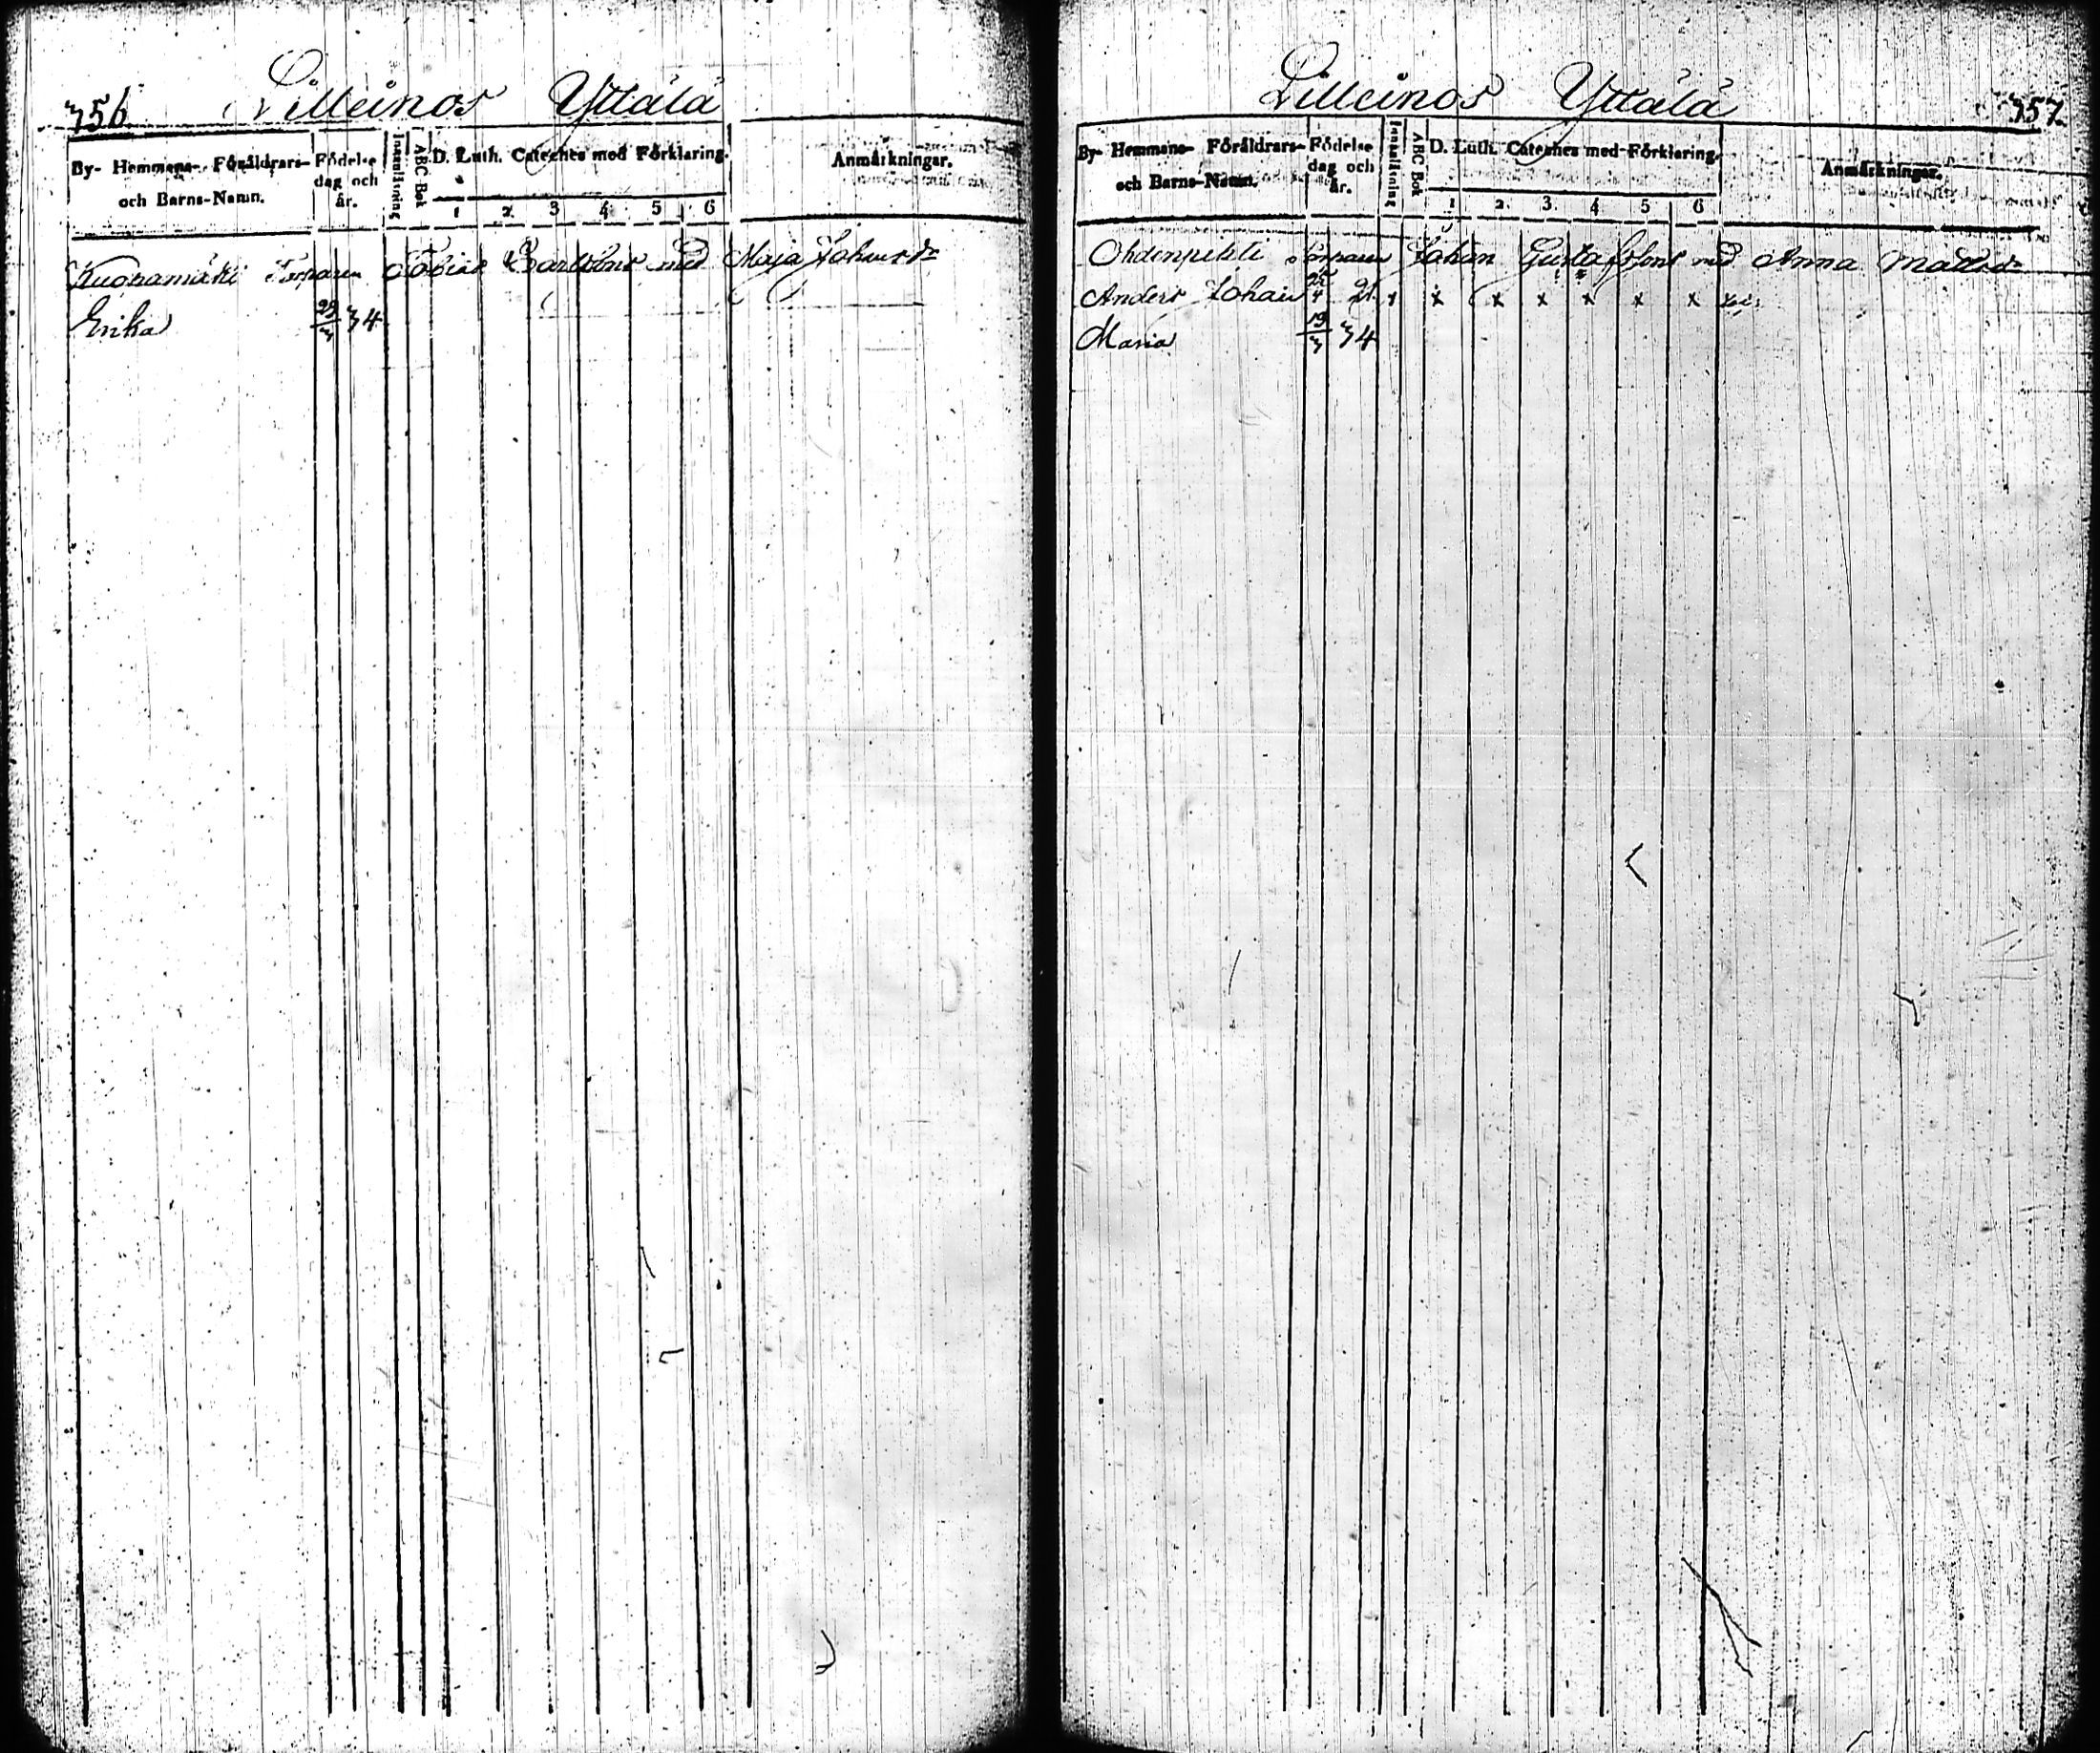 356. Lilleinos Yttälä
By- Hemmans- Föräldrars- och Barns-Namn.
Födelse dag och år.
Innanläsning
ABC Bok
D. Luth. Cateches med Förklaring.
1 2 3 4 5 6
Anmärkningar.
Kuonamäki Torparen Tobias Carlssons med Maja Johansdr
Erika 29/3 34
Lilleinos Yttälä 357.
By- Hemmans- Föräldrars- och Barns-Namn.
Födelse dag och år.
Innanläsning
ABC Bok
D. Luth. Cateches med Förklaring.
1 2 3 4 5 6
Anmärkningar.
Ohdenpelti Torparen Johan Gustafssons med Anna Mattsdr
Anders Johan 21 x x x x x x x
Maria 19/3 34